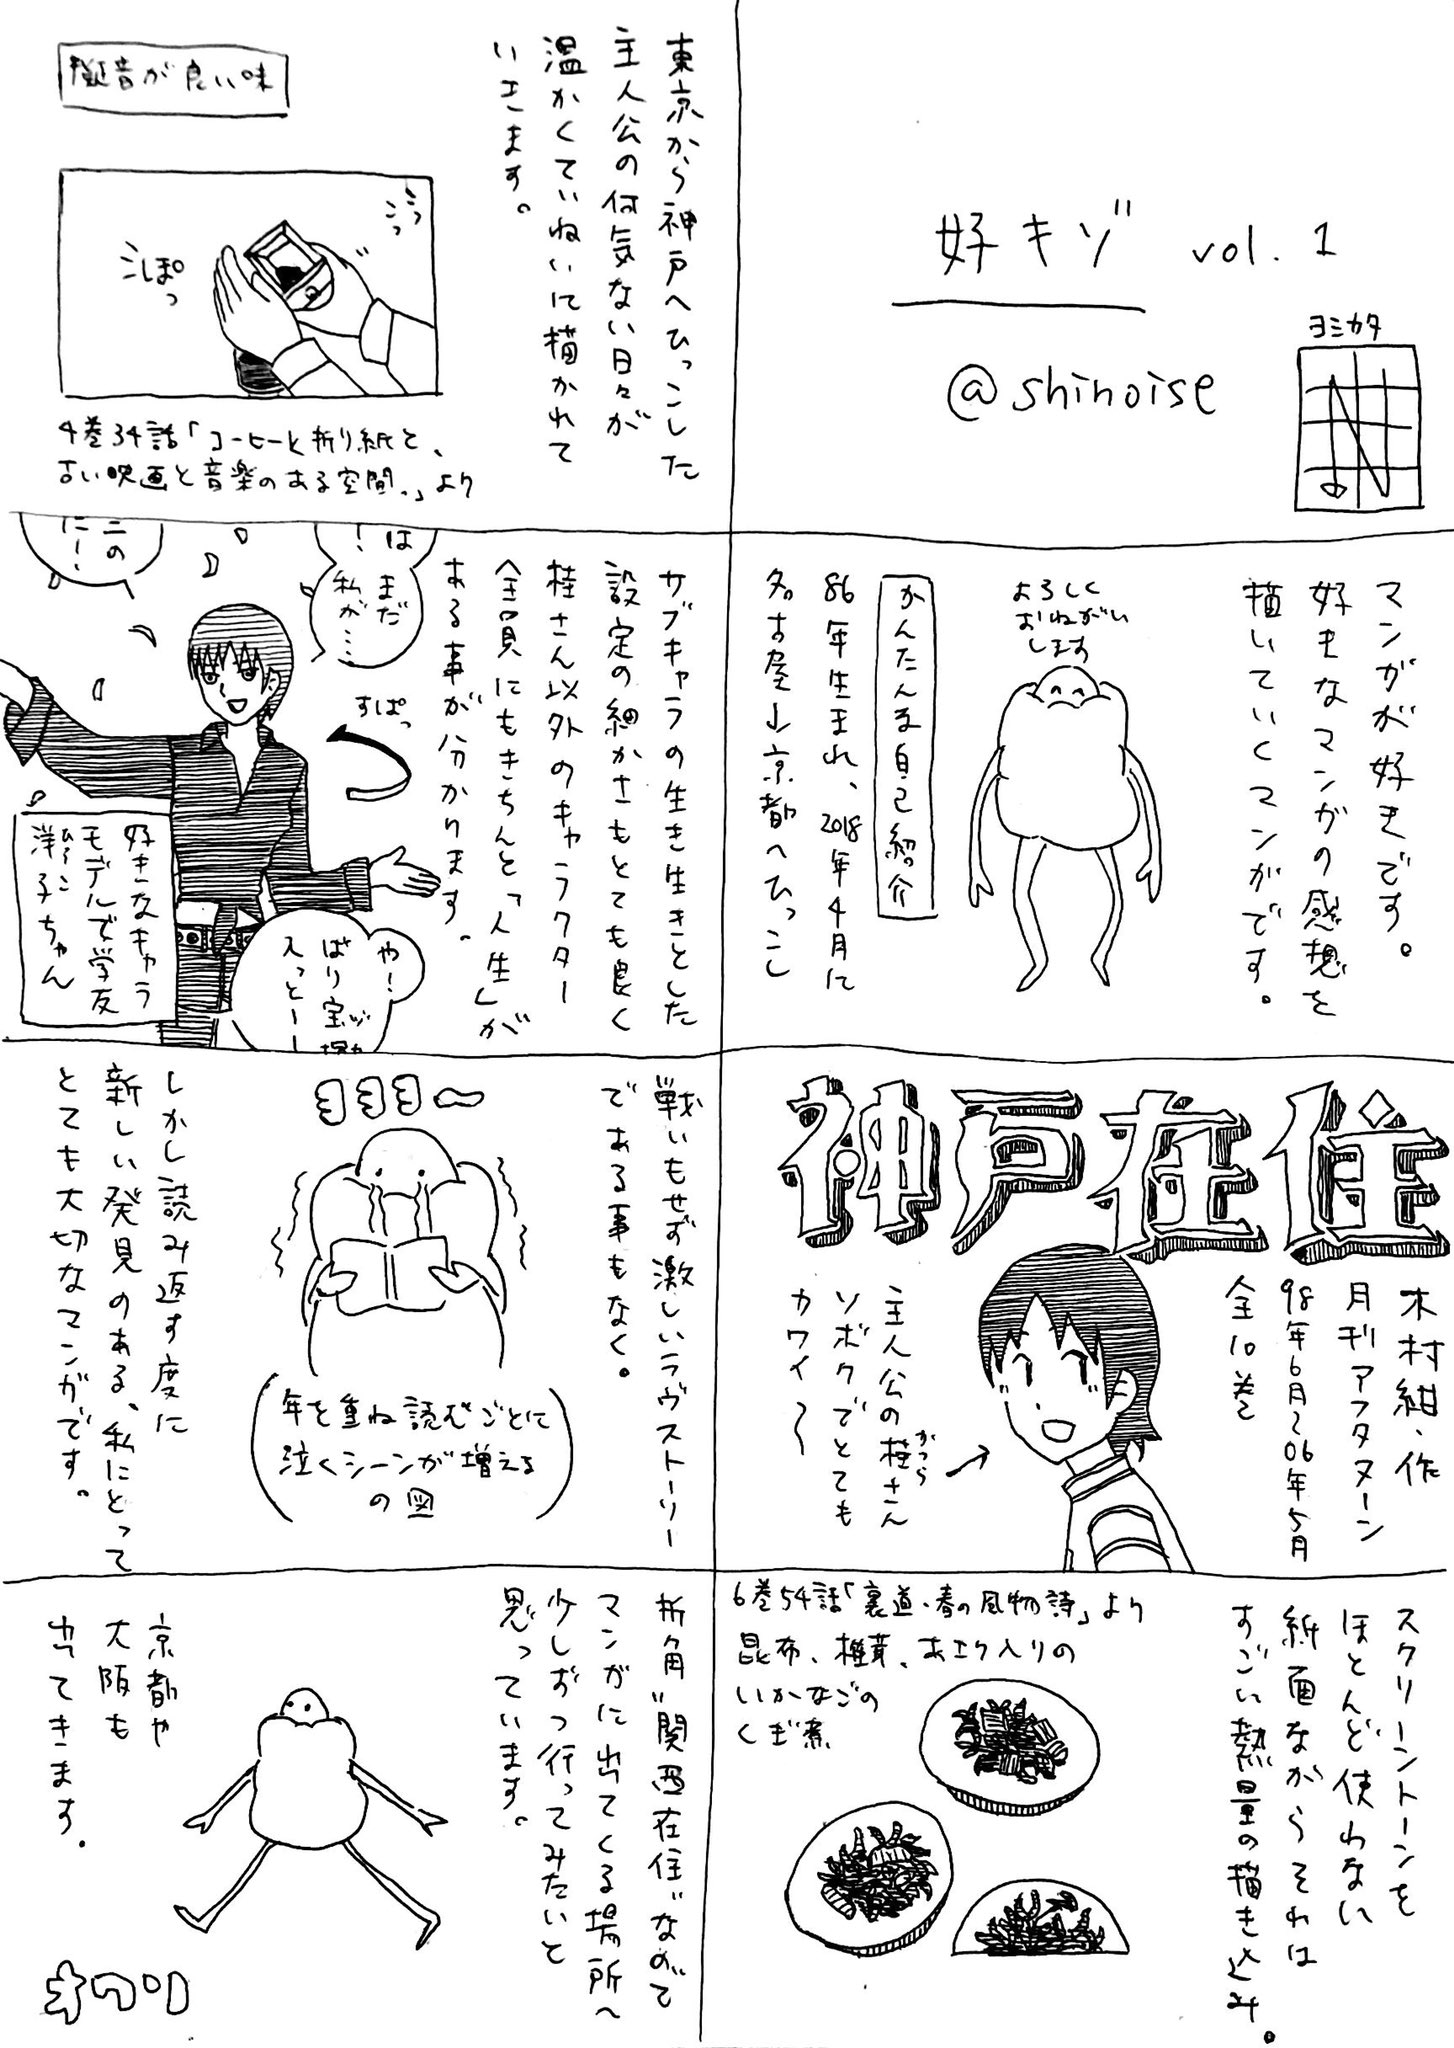 好キゾ vol.1
@shinoise
ヨミカタ
マンガが好きです。
好きなマンガの感想を
描いていくマンガです。
よろしく
おねがい
します
かんたんな自己紹介
86年生まれ、2018年4月に
名古屋→京都へひっこし
神戸在住
木村紺・作
月刊アフタヌーン
98年6月〜06年5月
全10巻
主人公の桂さん
かつら
ソボクでとても
カワイ〜
スクリーントーンを
ほとんど使わない
紙面ながらそれは
すごい熱量の描き込み。
6巻54話「裏道・春の風物詩」より
昆布、椎茸、あエり入りの
いかなごの
くぎ煮
東京から神戸へひっこした
主人公の何気ない日々が
温かくていねいに描かれて
いきます。
擬音が良い味
こっ
こっ
こぽっ
4巻34話「コーヒーと折り紙と、
古い映画と音楽のある空間。」より
サブキャラの生き生きとした
設定の細かさもとても良く
桂さん以外のキャラクター
全員にもきちんと「人生」が
ある事が分かります。
は
!
まだ
私が…
ニの
だ!
すぱっ
や!
ぱり宝塚
入っとー
好きなキャラ
モデルで学友
洋子ちゃん
ひろこ
戦いもせず激しいラヴストーリー
である事もなく。
ヨヨヨ〜
(年を重ね読むごとに
泣くシーンが増える
の図)
しかし読み返す度に
新しい発見のある、私にとって
とても大切なマンガです。
折角"関西在住"なので
マンガに出てくる場所へ
少しずつ行ってみたいと
思っています。
京都や
大阪も
出てきます。
オワリ